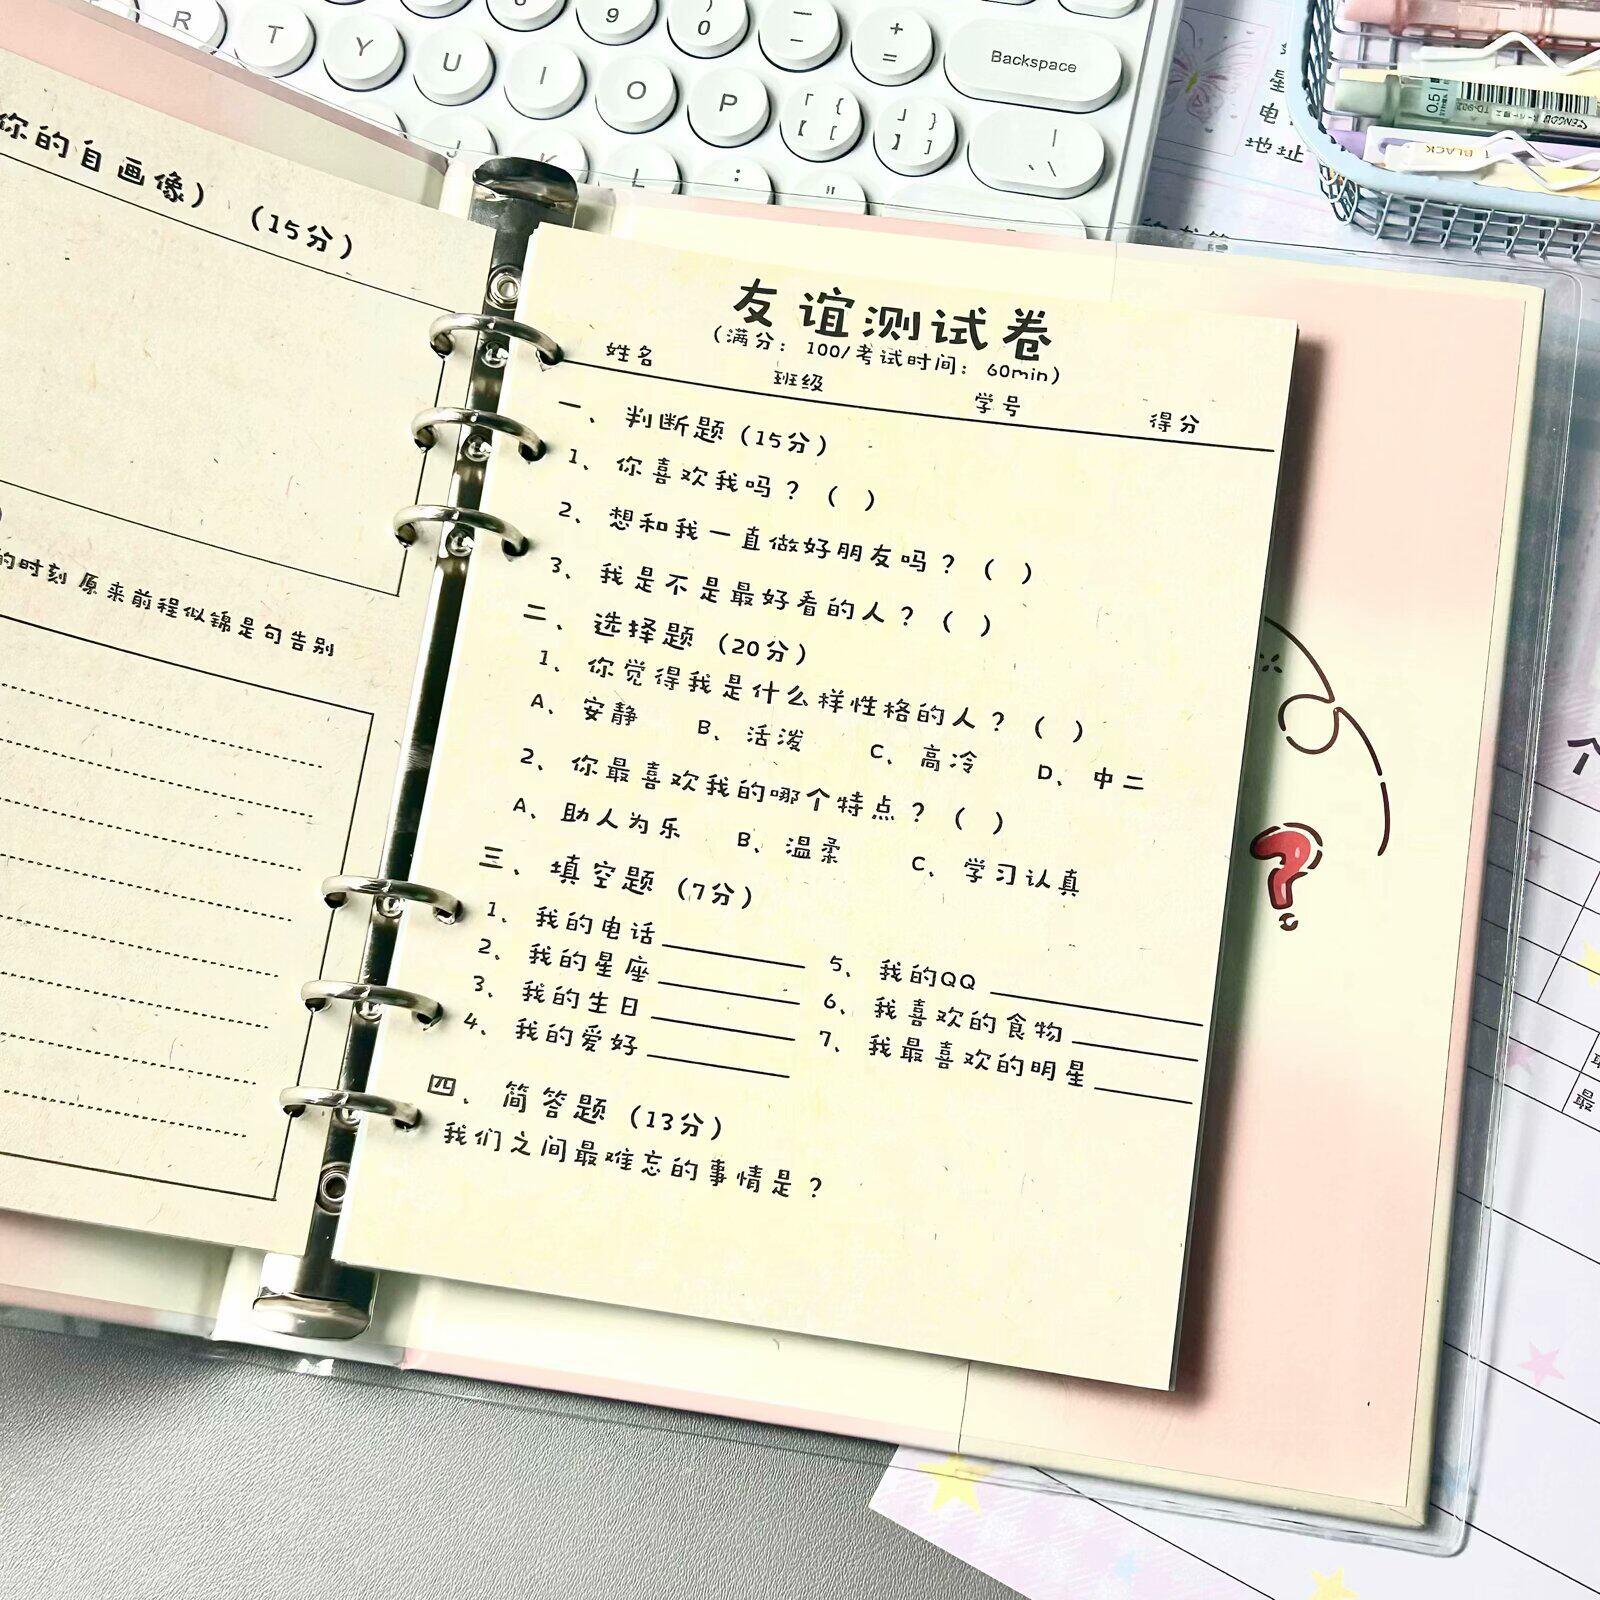 R T Y U I O P
9
0
+
=
Backspace
J K L
0.5
BLACK
电
地址
你的自画像） （15分）
的时刻 原来前程似锦是句告别
友谊测试卷
（满分：100/考试时间：60min）
姓名 班级 学号 得分
一、判断题（15分）
1、你喜欢我吗？（ ）
2、想和我一直做好朋友吗？（ ）
3、我是不是最好看的人？（ ）
二、选择题（20分）
1、你觉得我是什么样性格的人？（ ）
A、安静 B、活泼 C、高冷 D、中二
2、你最喜欢我的哪个特点？（ ）
A、助人为乐 B、温柔 C、学习认真
三、填空题（7分）
1、我的电话______ 5、我的QQ______
2、我的星座______ 6、我喜欢的食物______
3、我的生日______ 7、我最喜欢的明星______
4、我的爱好______
四、简答题（13分）
我们之间最难忘的事情是？
?
个
最